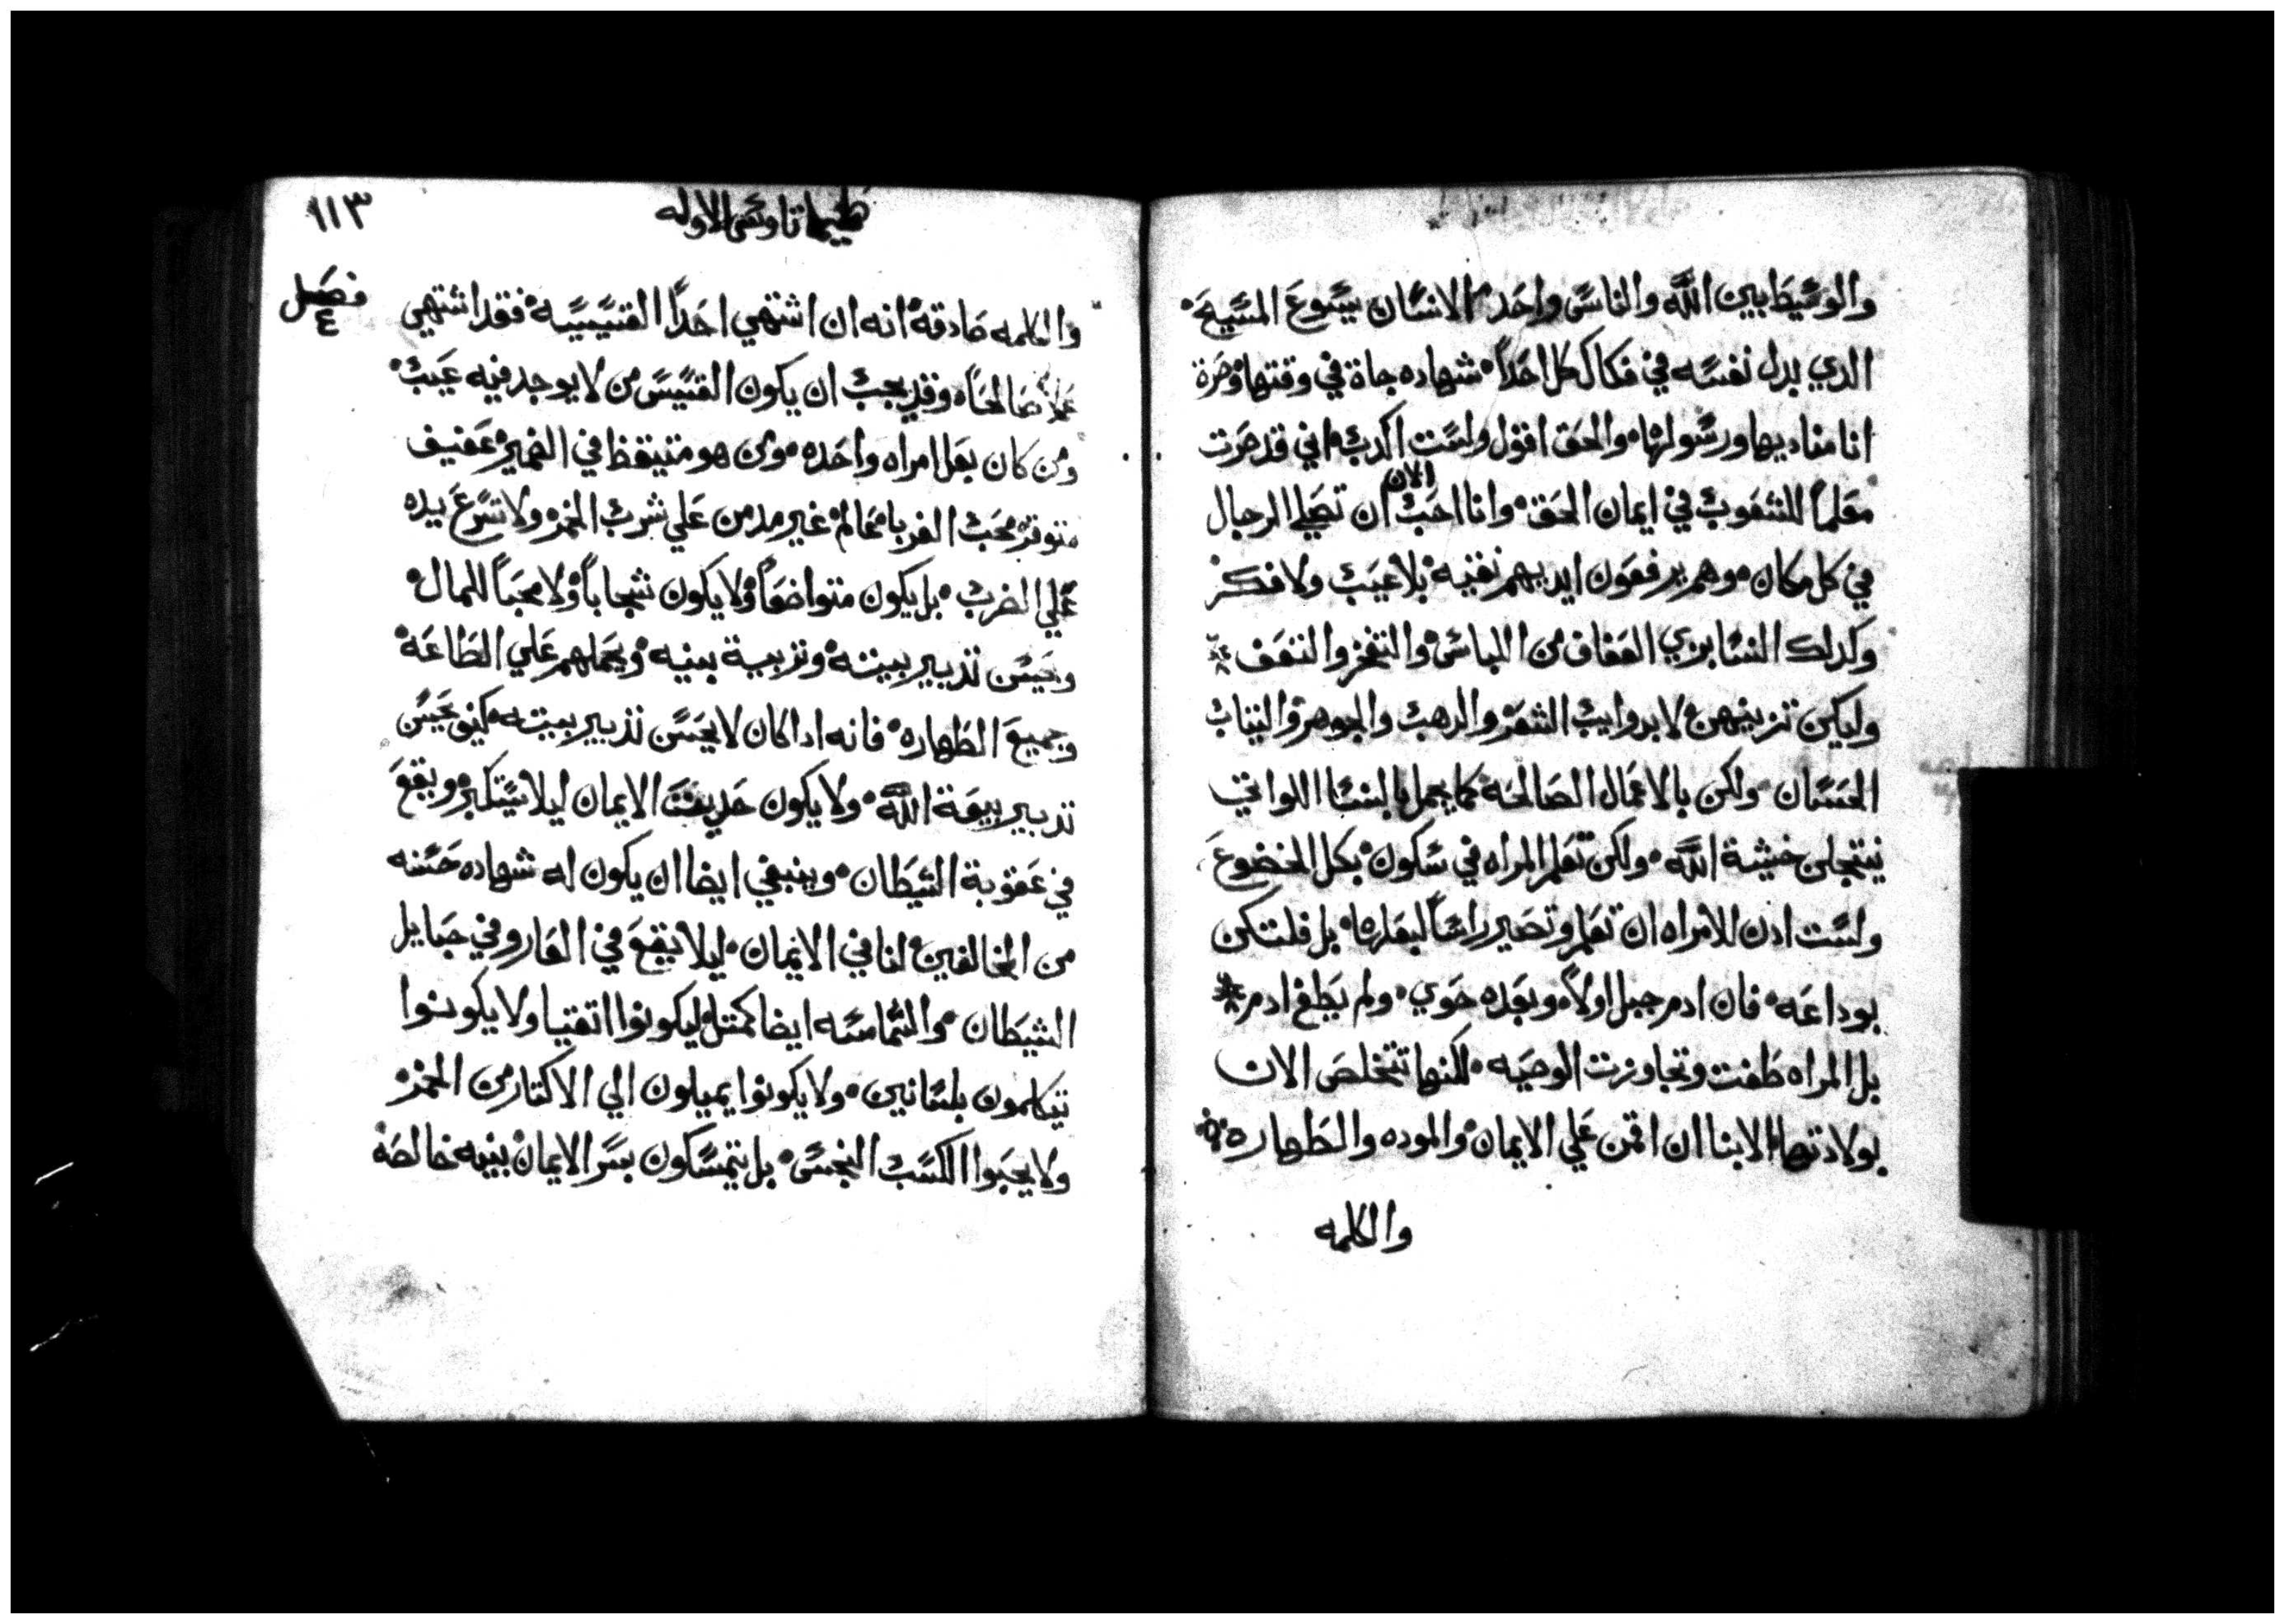 والوسيط بين الله والناس واحد الانسان يسوع المسيح
الدي بدل نفسه في فكاك كل احداً شهاده جاة في وقتها وصرة
انا مناديها ورسولها والحق اقول ولست اكدب اني قد صرت
معلماً للشعوب في ايمان الحق وانا احب الان ان تصلي الرجال
في كل مكان وهم يرفعون ايديهم نقيه بلا عيب ولا فكر
وكدلك النسا بزي العفاف من اللباس والتخفر والتعفف
وليكن تزينهن لا بدوايب الشعر والدهب والجوهر والتياب
الحسان ولكن بالاعمال الصالحة كما يجمل بالنسا اللواتي
ينتحلن خيشة الله ولكن تعلم المراه في سكون بكل الخضوع
ولست ادن للامراه ان تعلم وتصير راساً لبعلها بل فلتكن
بوداعه فان ادم جبل اولاً وبعده حوي ولم يطغ ادم
بل المراه طغت وتجاوزت الوصيه لكنها تتخلص الان
بولادتها الابنا ان اقمن علي الايمان والموده والطهاره
والكلمه
طيماتاوس الاوله
١١٣
فصل
٤
والكلمه صادقة انه ان اشتهي احداً القسيسيه فقد اشتهي
عملاً صالحاً وقد يجب ان يكون القسيس من لا يوجد فيه عيب
ومن كان بعل امراه واحده ومن هو متيقظ في الضمير عفيف
متوقر محب الغربا معالم غير مدمن علي شرب الخمر ولا تسرع يده
علي الضرب بل يكون متواضعاً ولا يكون شجاباً ولا محباً للمال
ويحسن تدبير بيته وتربية بنيه ويحملهم علي الطاعة
وجميع الطهاره فانه ادا كان لا يحسن تدبير بيته كيف يحسن
تدبير بيعة الله ولا يكون حديت الايمان ليلا يستكبر ويقع
في عقوبة الشيطان وينبغي ايضا ان يكون له شهاده حسنه
من المخالفين لنا في الايمان ليلا يقع في العار وفي حبايل
الشيطان والشماسه ايضا كمتل ليكونوا اتقيا ولا يكونوا
يتكلمون بلسانين ولا يكونوا يميلون الي الاكتار من الخمر
ولا يحبوا الكسب النجس بل يتمسكون بسر الايمان بنيه خالصة